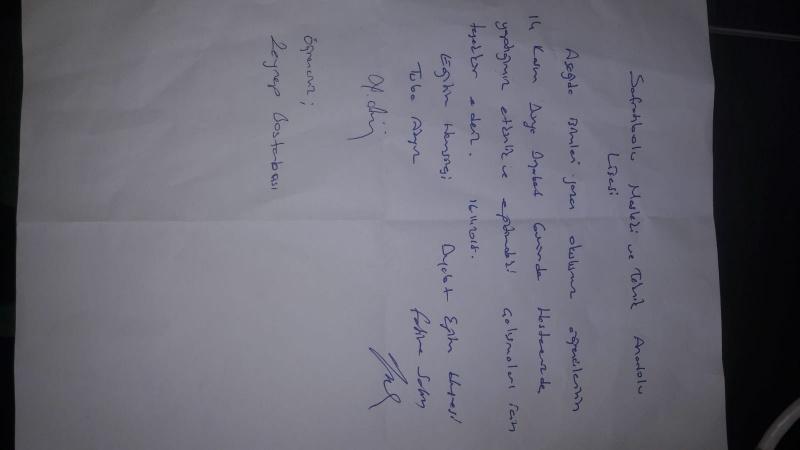 Safranbolu Mesleki ve Teknik Anadolu
Lisesi
Aşağıda isimleri yazan okulunuz öğrencilerinin
14 Kasım Dünya Diyabet Gününde Hastanemizde
yaptığımız etkinlik ve eğitimdeki Çalışmaları için
teşekkür ederiz.
Eğitim Hemşiresi Diyabet Eğitim Hemşiresi
Tuba Fatma
Öğrenciniz;
Zeynep Bostanbaşı